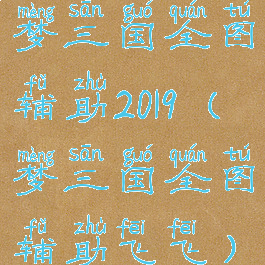 mèng sān guó quán tú
梦三国全图
fǔ zhù
辅助2019（
mèng sān guó quán tú
梦三国全图
fǔ zhù fēi fēi
辅助飞飞）